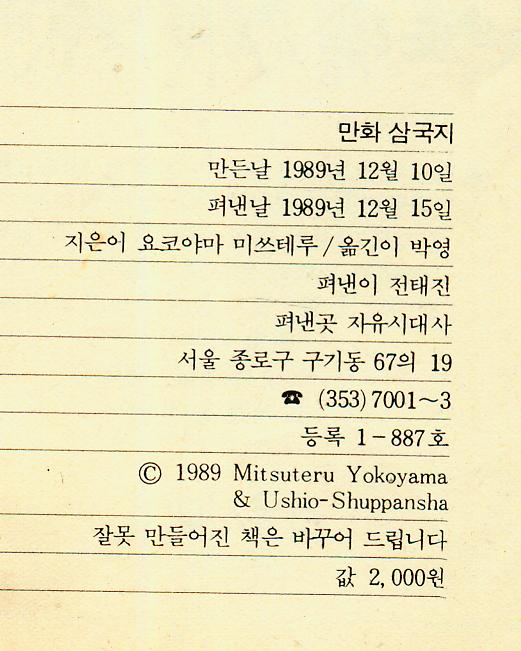 만화 삼국지
만든날 1989년 12월 10일
펴낸날 1989년 12월 15일
지은이 요코야마 미쓰테루/옮긴이 박영
펴낸이 전태진
펴낸곳 자유시대사
서울 종로구 구기동 67의 19
☎ (353)7001~3
등록 1-887호
© 1989 Mitsuteru Yokoyama
& Ushio-Shuppansha
잘못 만들어진 책은 바꾸어 드립니다
값 2,000원